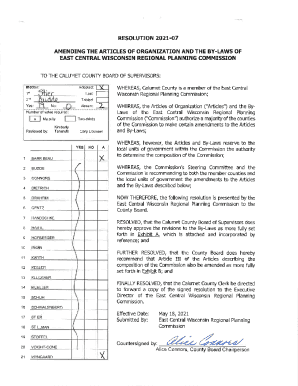 RESOLUTION 2021-07
AMENDING THE ARTICLES OF ORGANIZATION AND THE BY-LAWS OF
EAST CENTRAL WISCONSIN REGIONAL PLANNING COMMISSION
TO THE CALUMET COUNTY BOARD OF SUPERVISORS:
Motion: Adopted: X
1st Stier Lost:
2nd Tabled:
Yes: No: 0 Absent: 2
Number of votes required:
X Majority Two-thirds
Reviewed by: Kimberly Tenerelli Corp Counsel
YES NO A
1 BARRIBEAU X
2
3 CONNORS
4 DIETRICH
5
6 GENTZ
7
8
9 HOFBERGER
10
11
12
13
14 MUELLER
15
16 SCHWALENBERG
17 STIER
18
19 STOEFFEL
20
21 WENGAARD X
WHEREAS, Calumet County is a member of the East Central
Wisconsin Regional Planning Commission;
WHEREAS, the Articles of Organization ("Articles") and the By-
Laws of the East Central Wisconsin Regional Planning
Commission ("Commission") authorize a majority of the counties
of the Commission to make certain amendments to the Articles
and By-Laws;
WHEREAS, however, the Articles and By-Laws reserve to the
local units of government within the Commission the authority
to determine the composition of the Commission;
WHEREAS, the Commission's Steering Committee and the
Commission is recommending to both the member counties and
the local units of government the amendments to the Articles
and the By-Laws described below;
NOW THEREFORE, the following resolution is presented by the
East Central Wisconsin Regional Planning Commission to the
County Board.
RESOLVED, that the Calumet County Board of Supervisors does
hereby approve the revisions to the By-Laws as more fully set
forth in Exhibit A, which is attached and incorporated by
reference; and
FURTHER RESOLVED, that the County Board does hereby
recommend that Article III of the Articles describing the
composition of the Commission also be amended as more fully
set forth in Exhibit B; and
FINALLY RESOLVED, that the Calumet County Clerk be directed
to forward a copy of the signed resolution to the Executive
Director of the East Central Wisconsin Regional Planning
Commission.
Effective Date: May 18, 2021
Submitted By: East Central Wisconsin Regional Planning
Commission
Countersigned by: Alice Connors
Alice Connors, County Board Chairperson